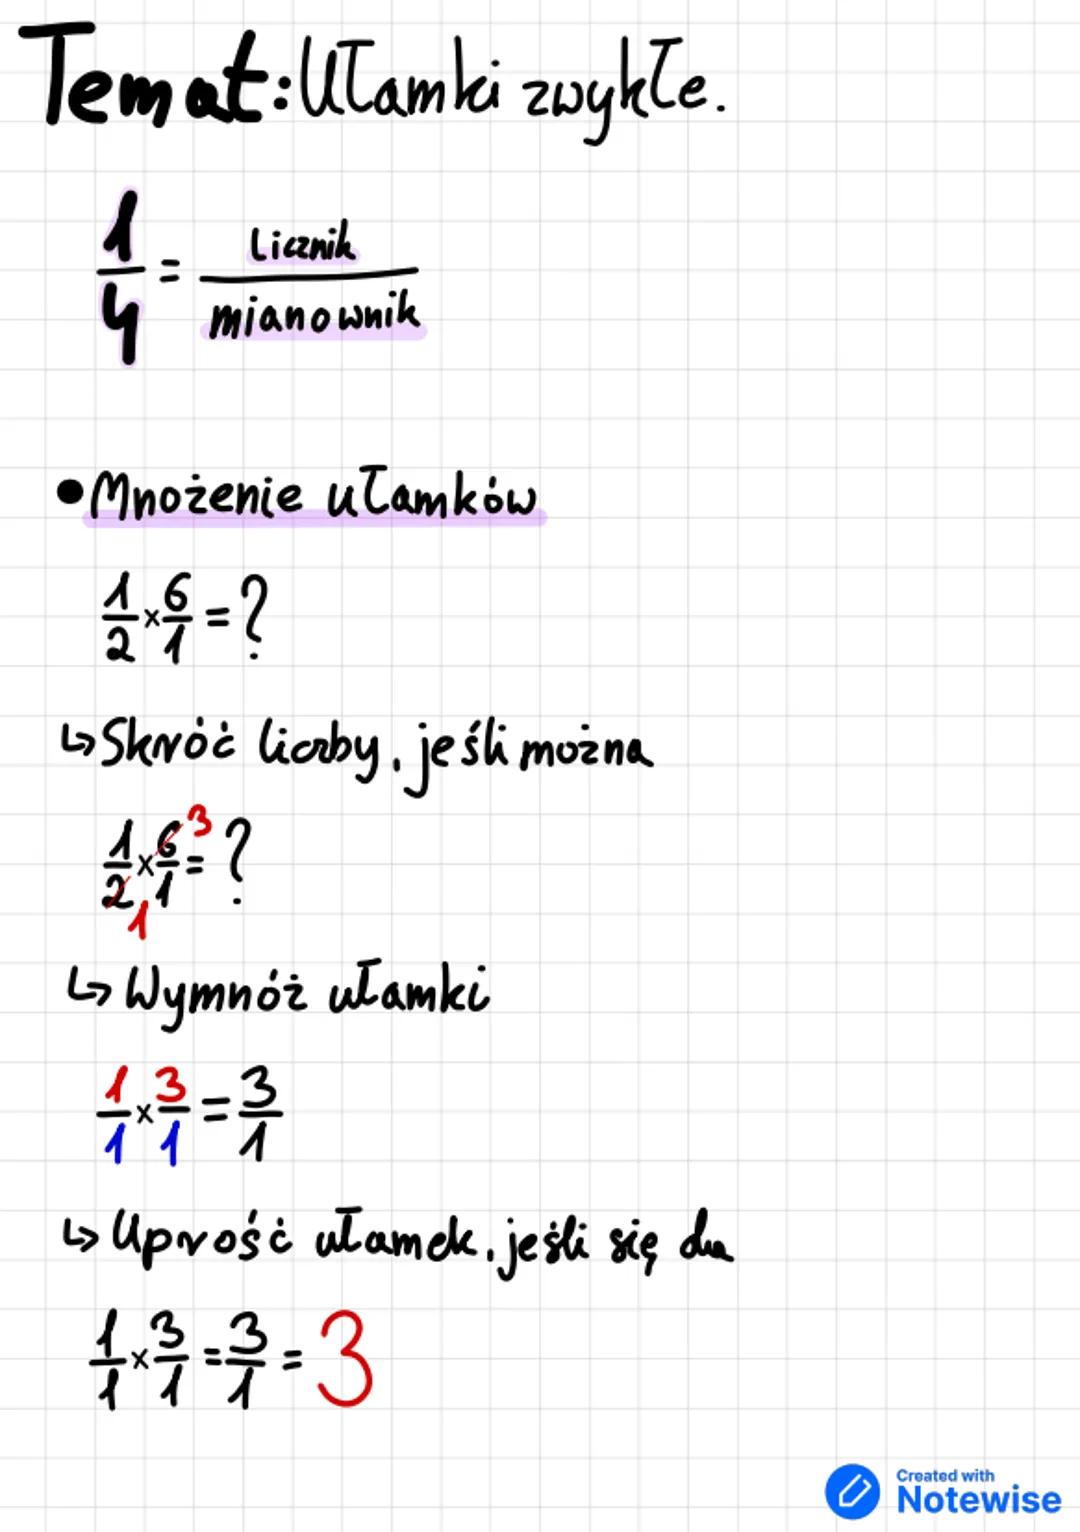 Temat: Ułamki zwykłe.
1/4 = licznik/mianownik
• Mnożenie ułamków
1/2 × 6/1 = ?
↳ Skróć liczby, jeśli można
1/2 × 6/1 = ? 3 1
↳ Wymnóż ułamki
1/1 × 3/1 = 3/1
↳ Uprość ułamek, jeśli się da
1/1 × 3/1 = 3/1 = 3
Created with
Notewise